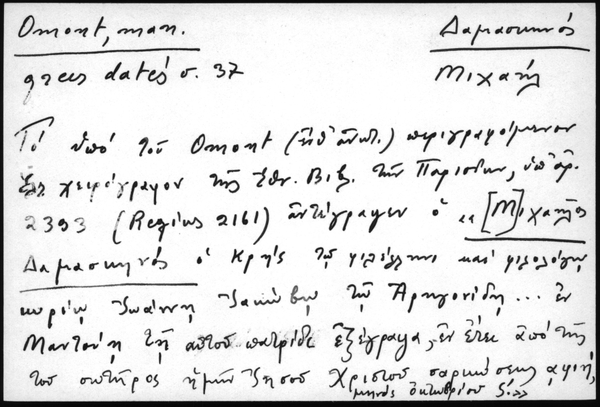 Omont, man. Δαμασκηνός
grecs datés σ. 37 Μιχαήλ
Τό ὑπό τοῦ Omont (ἔνθ' ἀνωτ.) περιγραφόμενον
χειρόγραφον τῆς Ἐθν. Βιβ. τῶν Παρισίων, ὑπ' ἀρ.
2393 (Regius 2161) ἀντέγραψεν ὁ «[Μ]ιχαῆλος
Δαμασκηνός ὁ Κρής τῷ φιλέλληνι καί φιλολόγῳ
κυρίῳ Ἰωάννῃ Ἰακώβῳ τῷ Ἀρηγονίδῃ... ἐν
Μαντούῃ τῇ αὐτοῦ πατρίδι ἐξέγραψα, ἐν ἔτει ἀπό τῆς
τοῦ σωτῆρος ἡμῶν Ἰησοῦ Χριστοῦ σαρκώσεως αφιη,
μηνός ὀκτωβρίου